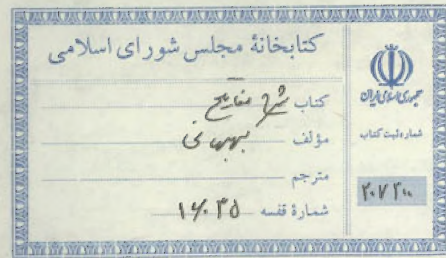 کتابخانهٔ مجلس شورای اسلامی
کتاب شرح مفاتیح
مؤلف بهبهانی
مترجم
شمارهٔ قفسه ۱۶۰۳۵
جمهوری اسلامی ایران
شماره ثبت کتاب
۲۰۷۲۰۰